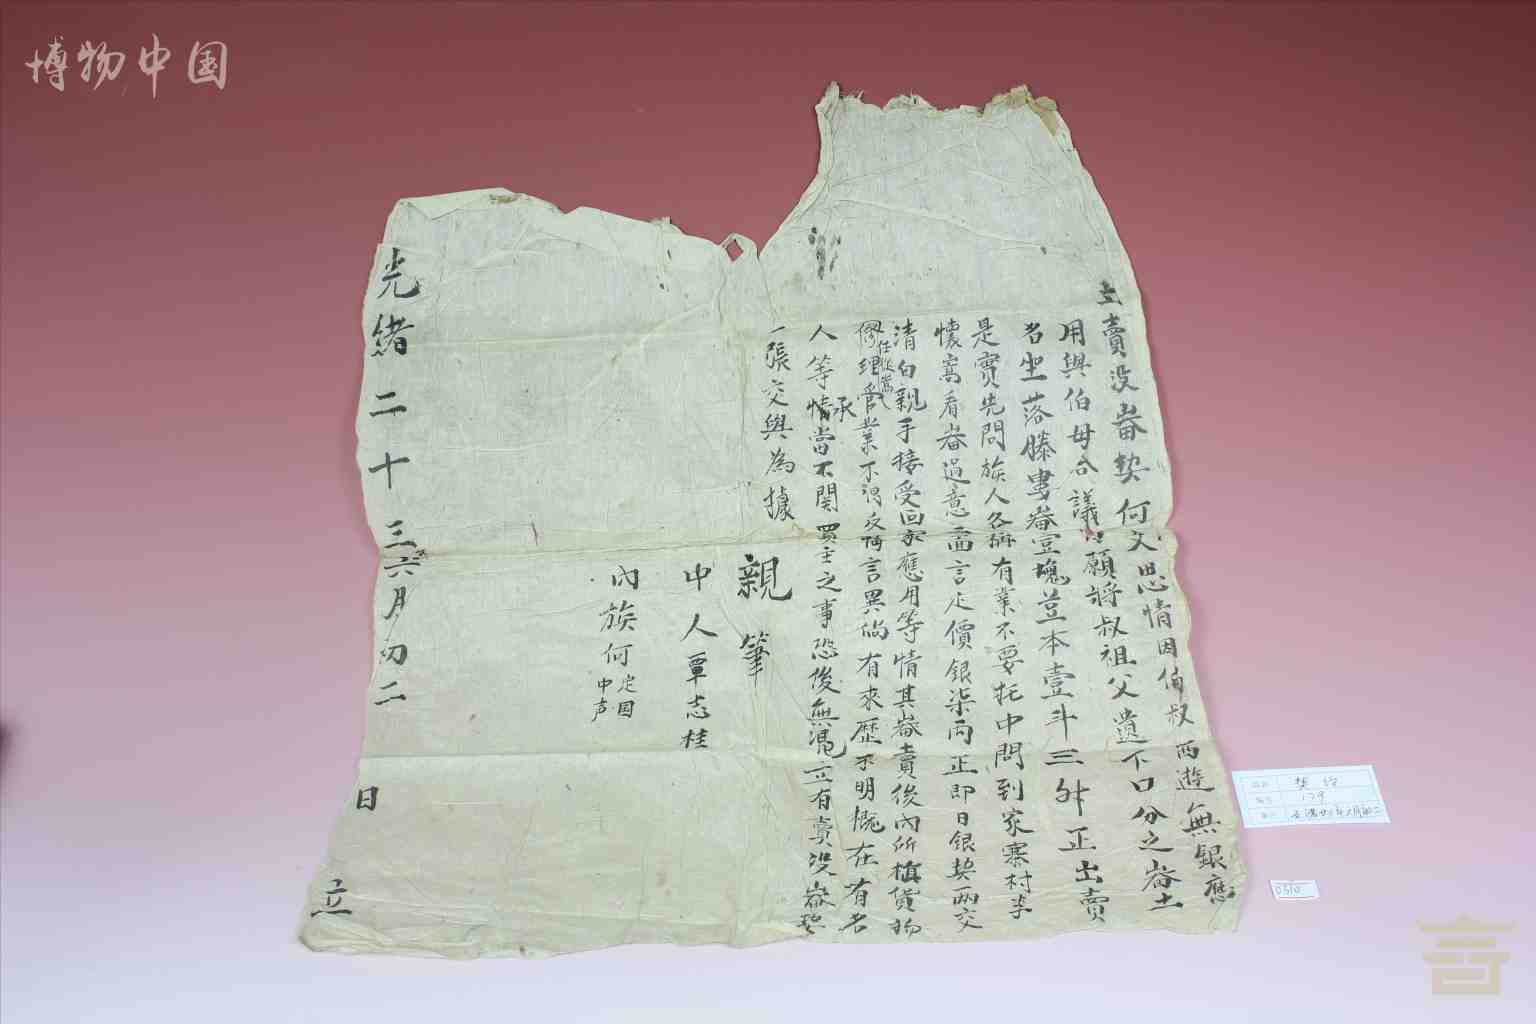 博物中国
立賣没畨契何文思情因伯叔西遊無銀應
用與伯母合議願將叔祖父遺下口分之畨土
名坐落滕婁畨壹塊荳本壹斗三舛正出賣
是實先問族人各称有業不要托中問到家寨村李
懷嵩看畨過意面言定價銀柒両正即日銀契兩交
清白親手接受回家應用等情其畨賣後內所植貨物
任從嵩
修理管業不得反悔言異倘有來歴不明慨在有名
人等情承當不関買主之事恐後無憑立有賣没畨契
一張交與為據
親筆
中人覃志桂
內族何定国
中声
光緒二十三年六月初二日立
契约
179
光緒廿三年六月初二
0310